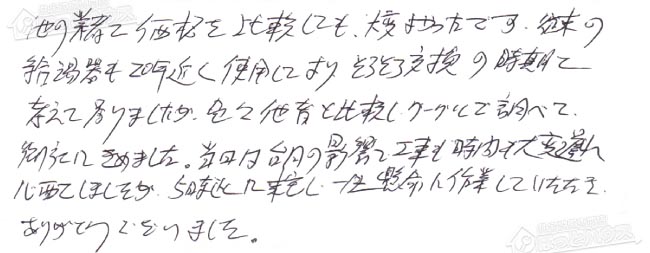 他の業者と価格を比較しても、大変よかったです。従来の
給湯器も20年近く使用しており そろそろ交換の時期と
考えて居りましたが、色々他者と比較しグーグルで調べて、
御社にきめました。当日は台月の影響で工事も時間も大変
心配してしましたが、5時近くに 一生懸命に作業していただき、
ありがとうございました。